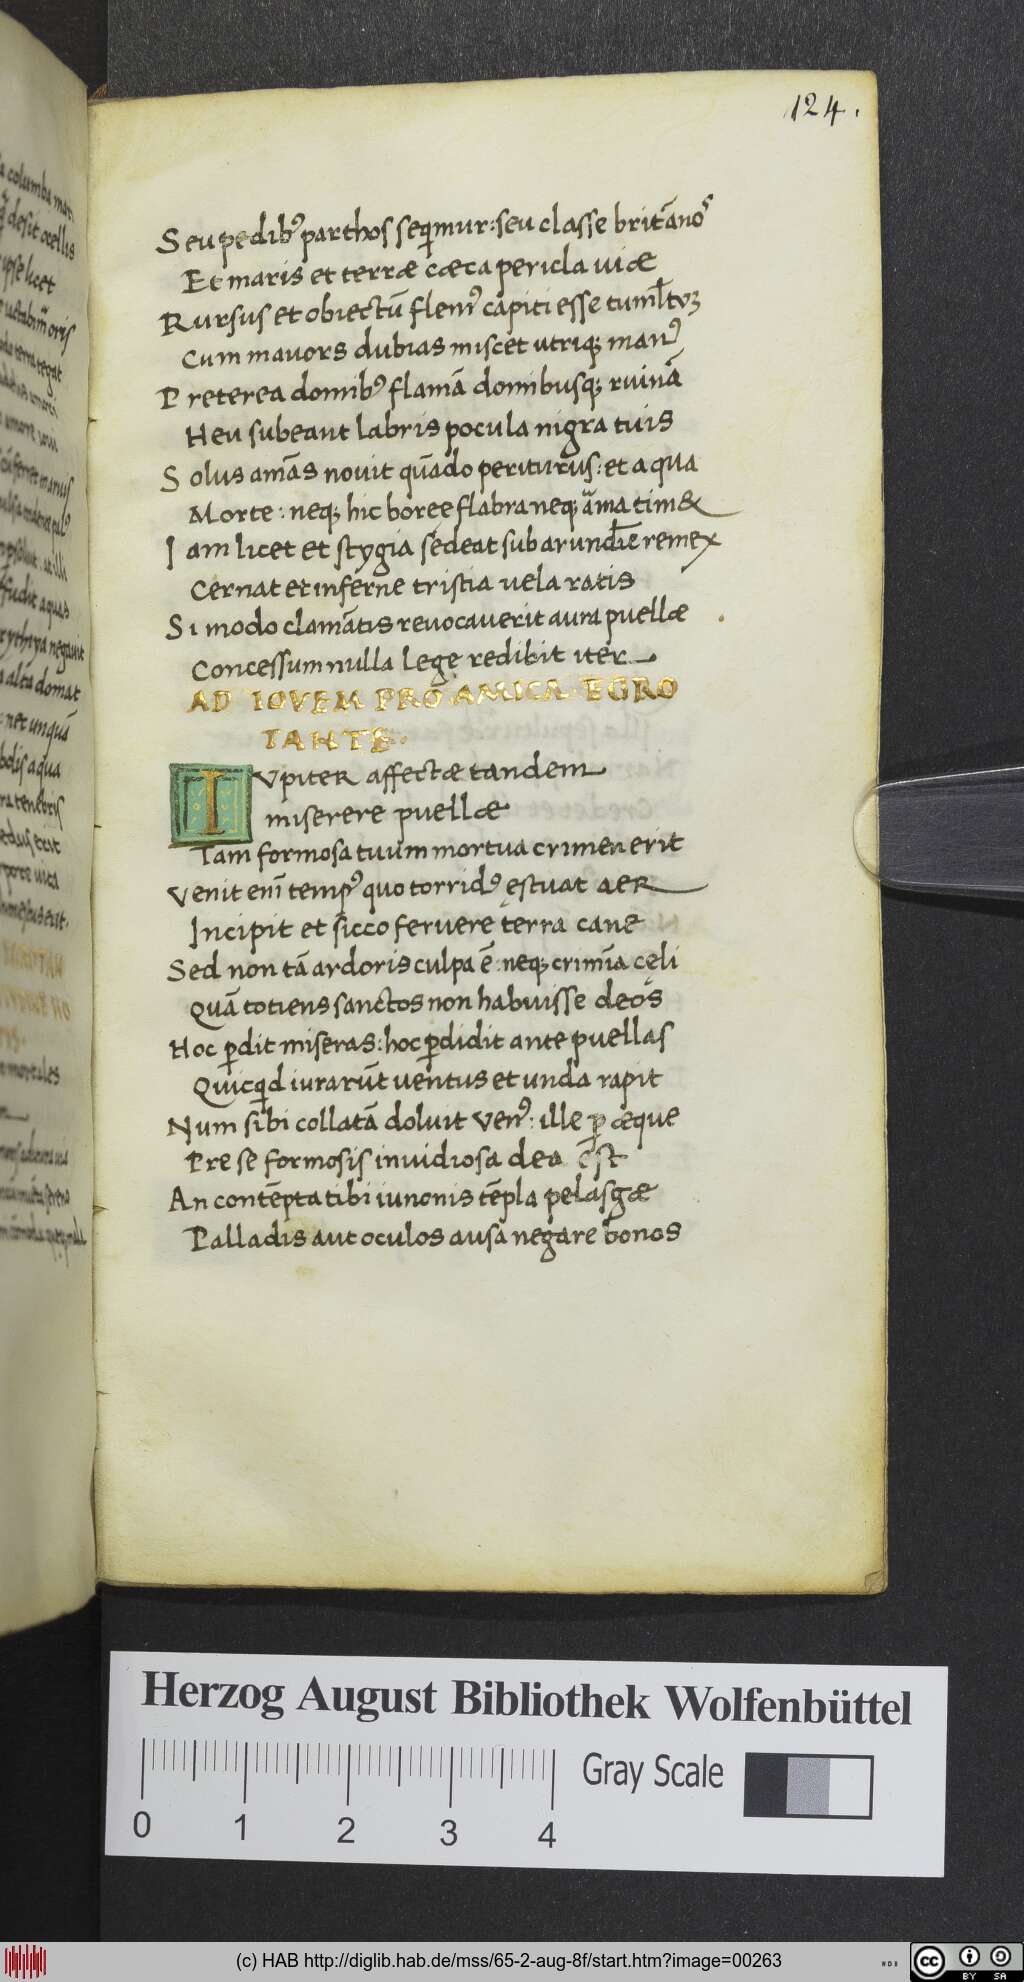 124.
Seu pedibꝰ parthos seqͥmur: seu classe britāno&#x1DE4;
Et maris et terræ cæca pericla uiæ
Rursus et obiectū flemꝰ capiti esse tuml̄tuꝫ
Cum mauors dubias miscet utriqꝫ manꝰ
Preterea domibꝰ flamā domibusqꝫ ruinā
Heu subeant labris pocula nigra tuis
Solus amās nouit qūado periturus: et a qua
Morte: neqꝫ hic boree flabra neqꝫ aͬma tim&
Iam licet et stygia sedeat sub arundīe remex
Cernat et inferne tristia uela ratis
Si modo clamātis reuocauerit aura puellæ
Concessum nulla lege redibit iter
AD IOVEM PRO AMICA EGRO
TANTE.
IVPITER affectæ tandem
miserere puellæ
Tam formosa tuum mortua crimen erit
Venit enī tempꝰ quo torridꝰ ęstuat aer
Incipit et sicco feruere terra cane
Sed non tā ardoris culpa ē: neqꝫ crimīa cęli
Quā totiens sanctos non habuisse deos
Hoc ꝑdit miseras: hoc ꝑdidit ante puellas
Quicqͥd iurarūt uentus et unda rapit
Num sibi collatā doluit Venꝰ: ille ꝑ æque
Pre se formosis inuidiosa dea est
An contēpta tibi iunonis tēpla pelasgæ
Palladis aut oculos ausa negare bonos
Herzog August Bibliothek Wolfenbüttel
0 1 2 3 4
Gray Scale
(c) HAB http://diglib.hab.de/mss/65-2-aug-8f/start.htm?image=00263
cc BY SA